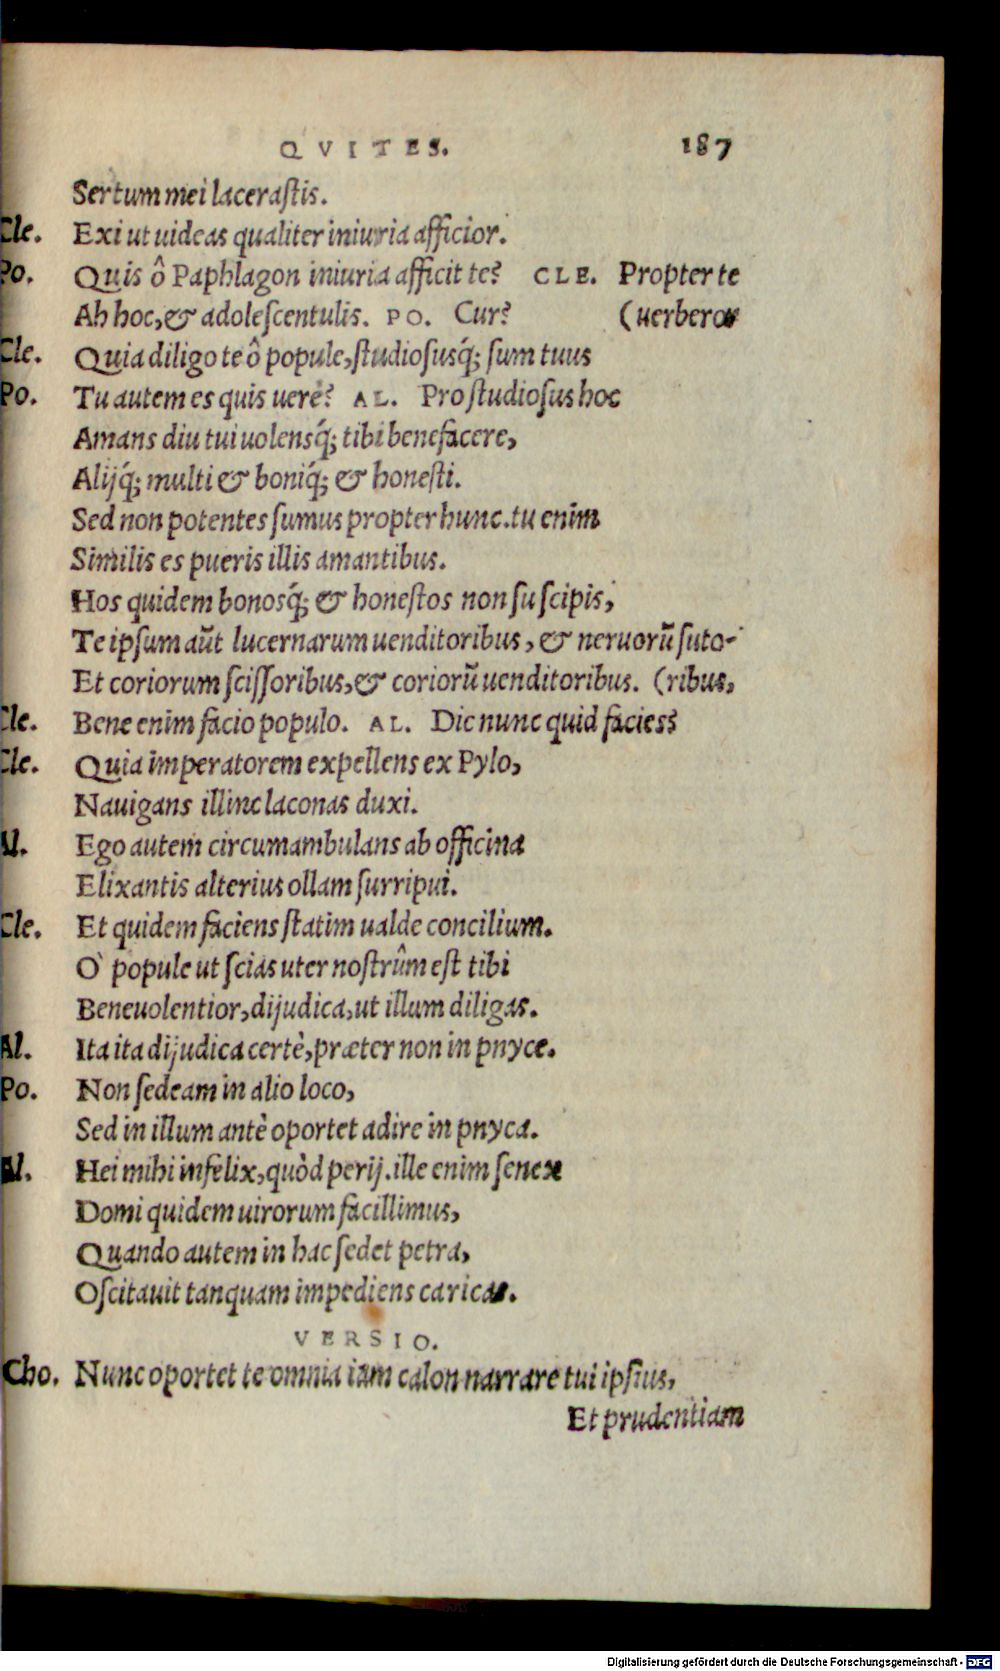 QVITES. 187
Sertum mei lacerastis.
Cle. Exi ut uideas qualiter iniuria afficior.
Po. Quis ô Paphlagon iniuria afficit te? CLE. Propter te
Ab hoc, & adolescentulis. PO. Cur? (uerberor
Cle. Quia diligo te ô popule, studiosusq́; sum tuus
Po. Tu autem es quis uere? AL. Pro studiosus hoc
Amans diu tui uolensq́; tibi benefacere,
Alijq́; multi & boniq́; & honesti.
Sed non potentes sumus propter hunc. tu enim
Similis es pueris illis amantibus.
Hos quidem bonosq́; & honestos non suscipis,
Te ipsum aũt lucernarum uenditoribus, & neruorũ suto-
Et coriorum scissoribus, & coriorũ uenditoribus. (ribus,
Cle. Bene enim facio populo. AL. Dic nunc quid facies?
Cle. Quia imperatorem expellens ex Pylo,
Nauigans illinc laconas duxi.
Al. Ego autem circumambulans ab officina
Elixantis alterius ollam surripui.
Cle. Et quidem faciens statim ualde concilium.
O` popule ut scias uter nostrûm est tibi
Beneuolentior, dijudica, ut illum diligas.
Al. Ita ita dijudica certè, præter non in pnyce.
Po. Non sedeam in alio loco,
Sed in illum antè oportet adire in pnyca.
Al. Hei mihi infelix, quòd perij. ille enim senex
Domi quidem uirorum facillimus,
Quando autem in hac sedet petra,
Oscitauit tanquam impediens caricas.
VERSIO.
Cho. Nunc oportet te omnia iam calon narrare tui ipsius,
Et prudentiam
Digitalisierung gefördert durch die Deutsche Forschungsgemeinschaft - DFG